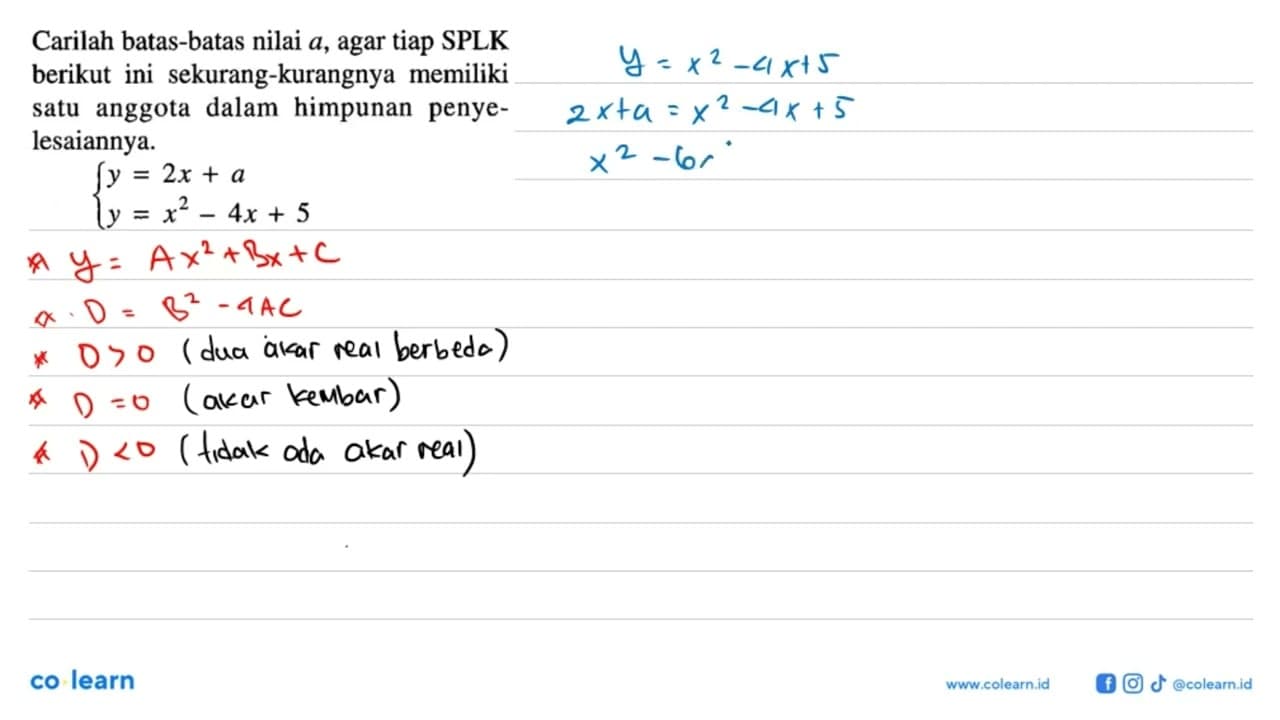 Carilah batas-batas nilai a, agar tiap SPLK
berikut ini sekurang-kurangnya memiliki
satu anggota dalam himpunan penye-
lesaiannya.
y = 2x + a
y = x² - 4x + 5
* y = Ax² + Bx + C
* D = B² - 4AC
* D > 0 (dua akar real berbeda)
* D = 0 (akar kembar)
* D < 0 (tidak ada akar real)
y = x² - 4x + 5
2x + a = x² - 4x + 5
x² - 6
co learn
www.colearn.id
@colearn.id